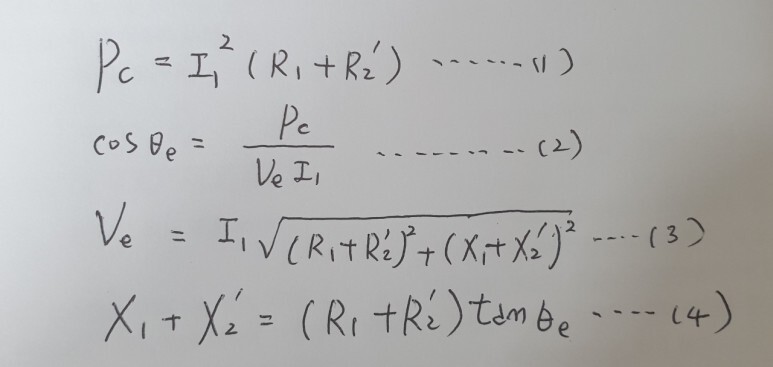 Pc = I₁² (R₁ + R₂′) ······· (1)
cos θe = Pc / (Ve I₁) ·········· (2)
Ve = I₁ √((R₁ + R₂′)² + (X₁ + X₂′)²) ····· (3)
X₁ + X₂′ = (R₁ + R₂′) tan θe ····· (4)